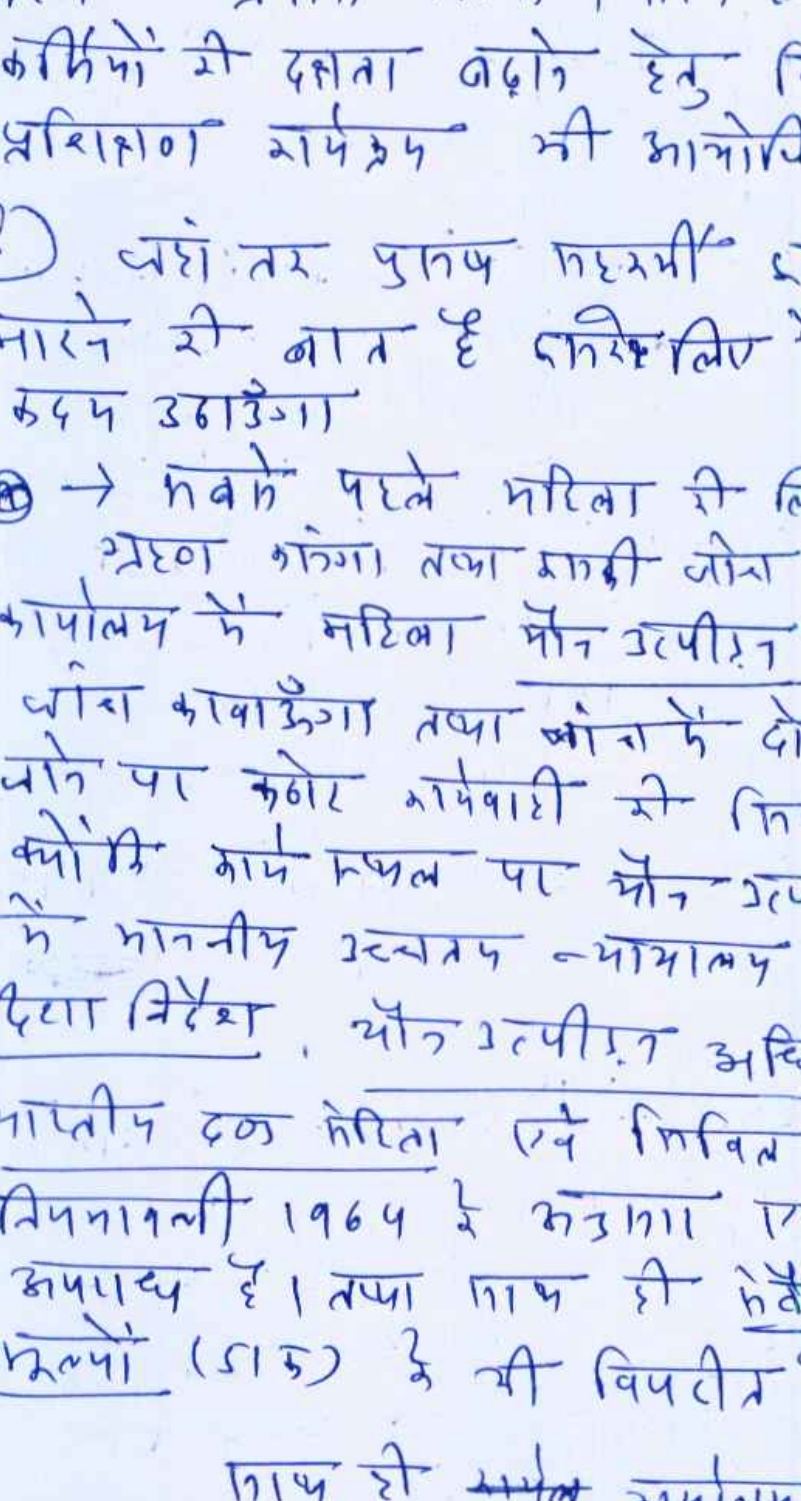 कर्मियों की दक्षता बढ़ाने हेतु
प्रशिक्षण कार्यक्रम भी आयोजि
जहां तक पुरुष सहकर्मी
मारने की बात है उसके लिए
कदम उठाउँगा
→ सबसे पहले महिला की लि
ग्रहण करूंगा तथा जाँच
कार्यालय में महिला यौन उत्पीड़न
जांच करवाऊँगा तथा जांच में दो
जाने पर कठोर कार्यवाही की सि
क्यों कि कार्य स्थल पर यौन उत्प
में माननीय उच्चतम न्यायालय
दिशा निर्देश, यौन उत्पीड़न अधि
भारतीय दण्ड संहिता एवं सिविल
नियमावली 1964 के अनुसार ए
अपराध है। तथा साथ ही संवै
मूल्यों (51क) के भी विपरीत
साथ ही